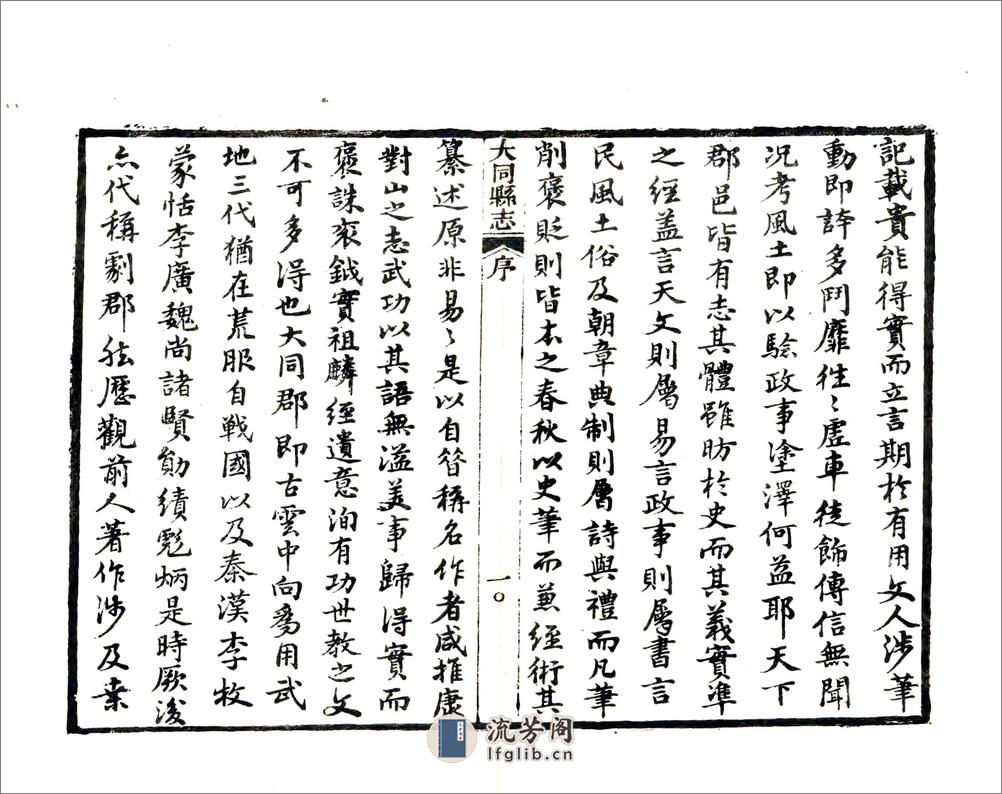 記載貴能得實而立言期於有用文人涉筆
動即誇多鬥靡徃〻虛車徒飾傳信無聞
況考風土即以驗政事塗澤何益耶天下
郡邑皆有志其體雖昉於史而其義實準
之經蓋言天文則屬易言政事則屬書言
民風土俗及朝章典制則屬詩與禮而凡筆
削褒貶則皆本之春秋以史筆而兼經術其
大同縣志
序
一〇
纂述原非易〻是以自昝稱名作者咸推康
對山之志武功以其語無溢美事歸得實而
褒誅衮鉞實祖麟經遺意洵有功世教之文
不可多得也大同郡即古雲中向為用武
地三代猶在荒服自戰國以及秦漢李牧
蒙恬李廣魏尚諸賢勛績彪炳是時厥後
亦代稱劇郡然歷觀前人著作涉及雲
流芳阁
lfglib.cn